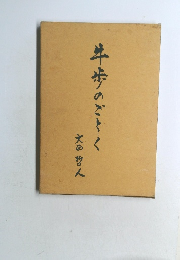 牛歩のごとく
太田哲人